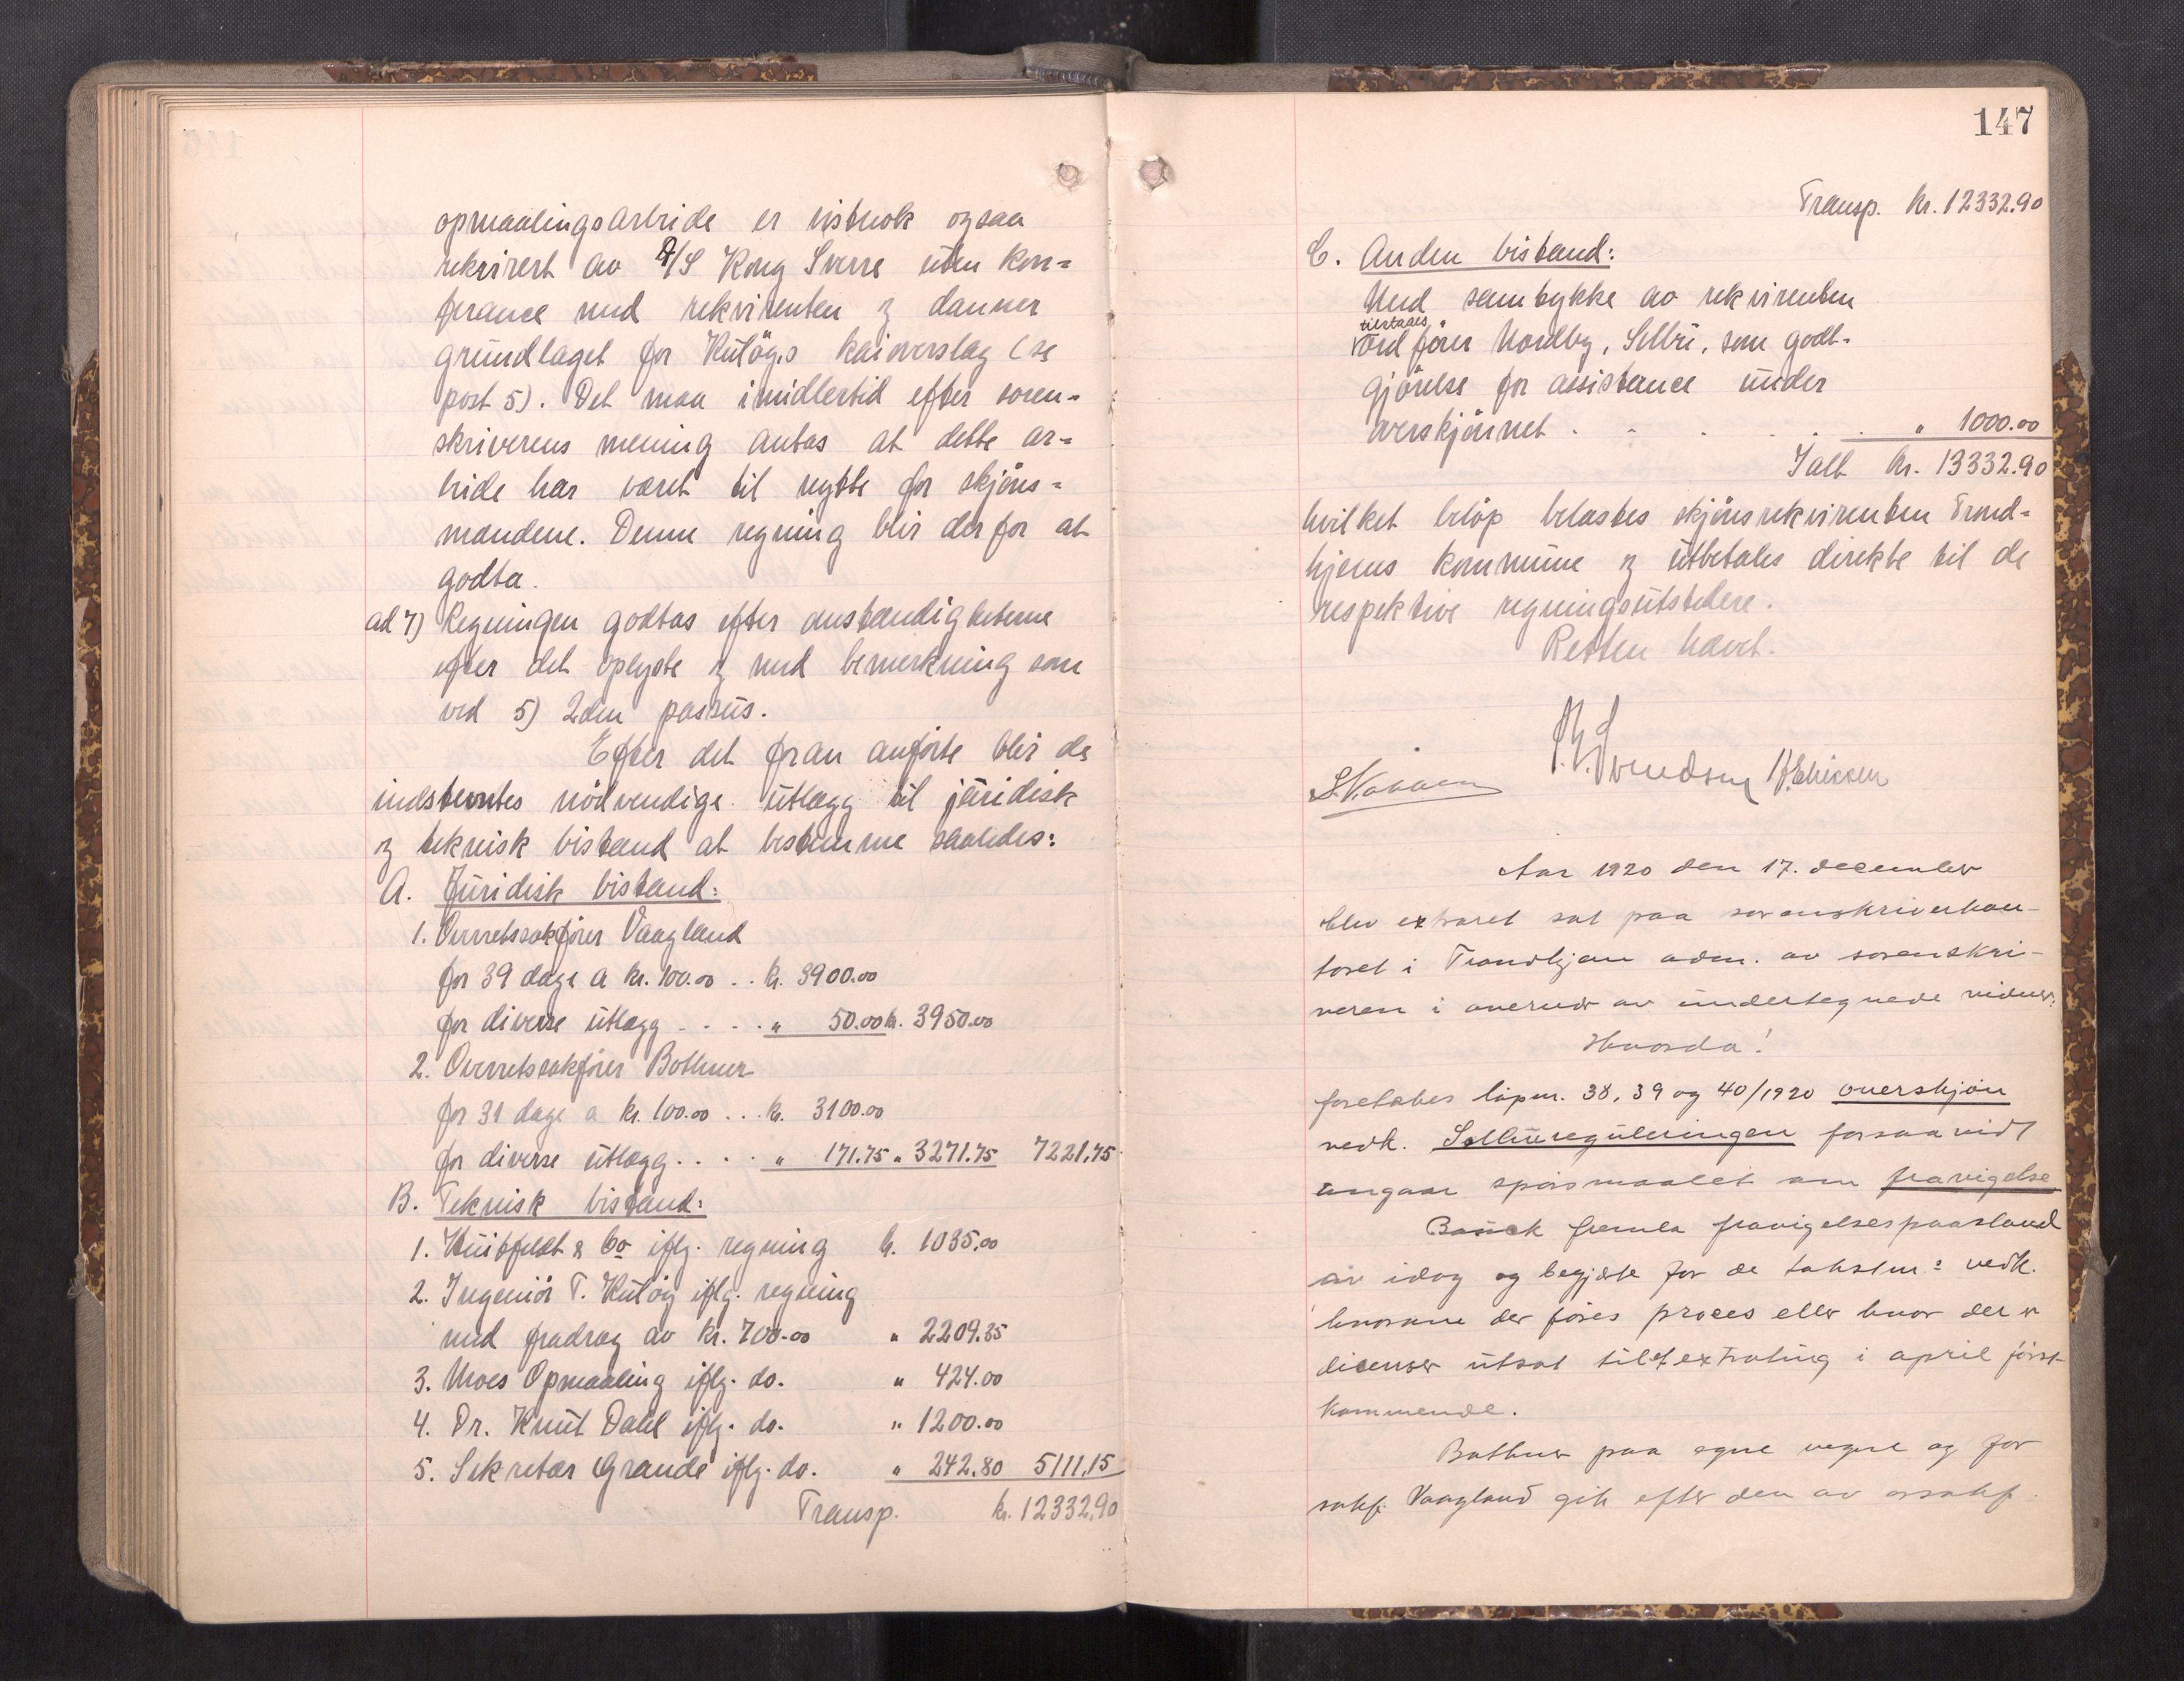 opmaalingsarbeide er vistnok ogsaa
rekvirert av A/S Kong Sverre uten kon=
ferance med rekvirenten og danner
grundlaget for Kuløgs kaioverslag (se
post 5). Det maa imidlertid efter soren=
skriverens mening antas at dette ar=
beide har været til nytte for skjøns=
mændene. Denne regning blir derfor at
godta.
ad 7) Regningen godtas efter omstændigheterne
efter det oplyste og med bemerkning som
ved 5) 2den passus.
Efter det foran anførte blir de
indstevntes nødvendige utlæg til juridisk
og teknisk bistand at bestemme saaledes:
A. Juridisk bistand:
1. Overretssakfører Vaagland
for 39 dage a kr. 100.00 .. kr. 3900.00
for diverse utlægg - . . . " 50.00 kr. 3950.00
2. Overretssakfører Bothner
for 31 dage a kr. 100.00 ... kr. 3100.00
for diverse utlægg . . . . " 171.75 " 3271.75 7221.75
B. Teknisk bistand:
1. & Co iflg. regning kr. 1035.00
2. Ingeniør T. Kuløy iflg. regning
med fradrag av kr. 700.00 " 2209.35
3. Moes Opmaaling iflg. do. " 424.00
4. Dr. Knut Dahl iflg. do. " 1200.00
5. Sekretær Grande iflg. do. " 242.80 5111.15
Transp. kr. 12332.90
147
Transp. kr. 12332.90
C. Anden bistand:
Med samtykke av rekvirenten
tilstaaes
ordfører Nordby, Selbu, som godt-
gjørelse for assistance under
overskjønnet . - . . . . " 1000.00
Ialt kr. 13332.90
hvilket beløp belastes skjønsrekvirenten Trond=
hjems kommune og utbetales direkte til de
respektive regningsutstedere.
Retten hævet.
Svendsen
Aar 1920 den 17. december
blev extraret sat paa sorenskriverkon-
toret i Trondhjem adm. av sorenskri-
veren i overvær av undertegnede vidner:
Hvorda!
foretokes løpnr. 38, 39 og 40/1920 overskjøn
vedk. Selbureguleringen forsaavidt
angaar spørsmaalet om fravigelse
Bauck fremla fravigelsespaastand
av idag og begjærte for de takstnr: vedk.
hvorom der føres proces eller hvor der er
utsat til extrating i april først-
kommende.
Bothner paa egne vegne og for
sakf. Vaagland gik efter den av orsakf.